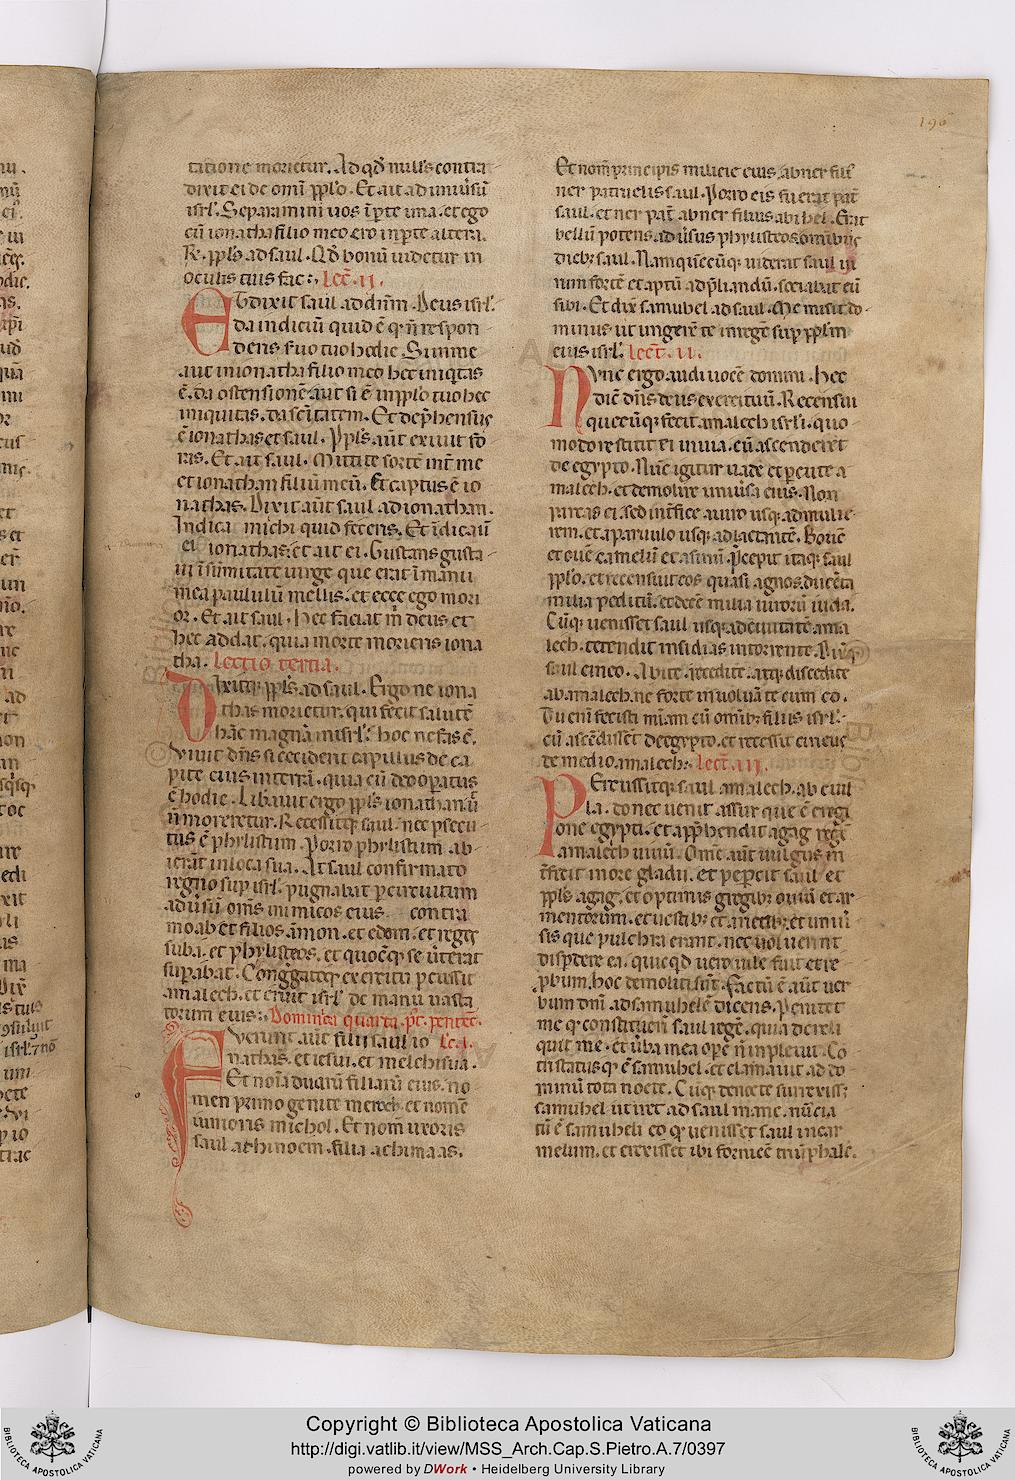 196
tatione morietur. Ad qđ null's contra
dixit ei de omi ppl'o. Et ait ad uniu'sũ
isrl'. Separamini uos ĩ pte una. et ego
cũ ionatha filio meo ero in pte altera.
R̃. ppl's ad saul. Qđ bonũ uidetur in
oculis tuis fac:, Lec̃. ii.
Et dixit saul ad dñm. Deus isrl'.
da indiciũ quid ẽ qr ñ respon-
deris suo tuo hodie. Si in me
aut in ionatha filio meo hec iniqtas
ẽ. da ostensionẽ. aut si ẽ in ppl'o tuo hec
iniquitas. da sci'tatem. Et dep̃hensus
ẽ ionathas et saul. Ppl's aũt exiuit fo
ris. Et ait saul. Mittite sortẽ int' me
et ionathan filiũ meũ. Et captus ẽ io
nathas. Dixit aũt saul ad ionathan.
Indica michi quid feceris. Et ĩdicauit
ei ionathas. et ait ei. Gustans gusta-
ui ĩ sũmitate uirge que erat ĩ manu
mea paululũ mellis. et ecce ego mori
or. Et ait saul. Hec faciat m̃ deus et
hec addat. quia morte morieris iona
tha. Lectio tertia.
Dixitqr ppl's ad saul. Ergo ne iona
thas morietur. qui fecit salutẽ
hãc magnã in isrl'. hoc nefas ẽ.
Viuit dñs si ceciderit capillus de ca
pite eius in terrã. quia cũ deo opatus
ẽ hodie. Liberauit ergo ppl's ionathan. ut
ñ moreretur. Recessitqr saul. nec psecu-
tus ẽ phylistim. Porro phylistiim ab-
ierũt in loca sua. At saul confirmato
regno sup isrl'. pugnabat p circuitum
adu'sũ oms inimicos eius. contra
moab et filios amon. et edom. et reges
suba. et phylisteos. et quocũqr se u'terat
supabat. Congregatoqr exercitu pcussit
amalech. et eruit isrl' de manu uasta
torum eius:, Dominica quarta p't. pentec̃.
Fuerunt aũt filii saul io Lc̃. i.
nathas. et iesui. et melchisua.
Et noĩa duarũ filiarũ eius. no
men primogenite merob. et nomẽ
iunioris michol. Et nom̃ uxoris
saul achinoem. filia achimaas.
Et nom̃ principis milicie eius. abner fili'
ner patruelis saul. Porro cis fuerat pat'
saul. et ner pat' abner filius abihel. Erat
bellũ potens. adu'sus phylisteos omnibus
dieb; saul. Nam quẽcũqr uiderat saul ui
rum fortẽ et aptũ ad p̃liandũ. sociabat eũ
sibi. Et dix̃ samuhel ad saul. Me misit do-
minus ut ungerẽ te in regẽ sup ppl'm
eius isrl'. Lect̃. ii.
Nunc ergo audi uocẽ domini. Hec
dicit dñs deus exercituũ. Recensui
quecũqr fecit amalech isrl'i. quo-
modo restitit ei in uia. cũ ascenderet
de egypto. Nũc igitur uade et p̃cute a
malech. et demolire uniu'sa eius. Non
parcas ei. sed int'fice a uiro usqr ad mulie-
rem. et a paruulo usqr ad lactentẽ. Bouẽ
et ouẽ camelũ et asinũ. P̃cepit itaqr saul
ppl'o. et recensuit eos quasi agnos. ducẽta
milia peditũ. et decẽ milia uirorũ iuda.
Cũqr uenisset saul usqr ad ciuitatẽ ama
lech. tetendit insidias in torrente. Dixitqr
saul cineo. Abite. recedite. atqr discedite
ab amalech. ne forte inuoluã te cum eo.
Tu eni fecisti mĩam cũ omib; filiis isrl'.
cũ ascẽdisset de egypto. et recessit cineus
de medio amalech:, Lect̃. iii.
Percussitqr saul amalech. ab euil
la. donec uenit assur que ẽ e regi
one egypti. et app̃hendit agag regẽ
amalech uiuũ. Omẽ aũt uulgus in
t'fecit in ore gladii. et pepcit saul et
ppl's agag. et optimis gregib; ouiũ et ar
mentorum. et uestib; et arietib;. et uniu'
sis que pulchra erant. nec uoluerunt
dispdere ea. quicqd uero uile fuit et re
pbum. hoc demoliti sũt. Factũ ẽ aũt uer
bum dni ad samuhelẽ dicens. Penitet
me qr constituerim saul regẽ. quia dereli
quit me. et u'ba mea ope ñ inpleuit. Co
tristatusqr ẽ samuhel. et clamauit ad do
minũ tota nocte. Cũqr de nocte surrexiss;
samuhel ut iret ad saul mane. nũcia
tũ ẽ samuheli eo qr uenisset saul in car
melum. et erexisset ibi fornicẽ triũphalẽ.
Copyright © Biblioteca Apostolica Vaticana
http://digi.vatlib.it/view/MSS_Arch.Cap.S.Pietro.A.7/0397
powered by DWork • Heidelberg University Library
BIBLIOTECA APOSTOLICA VATICANA
BIBLIOTECA APOSTOLICA VATICANA